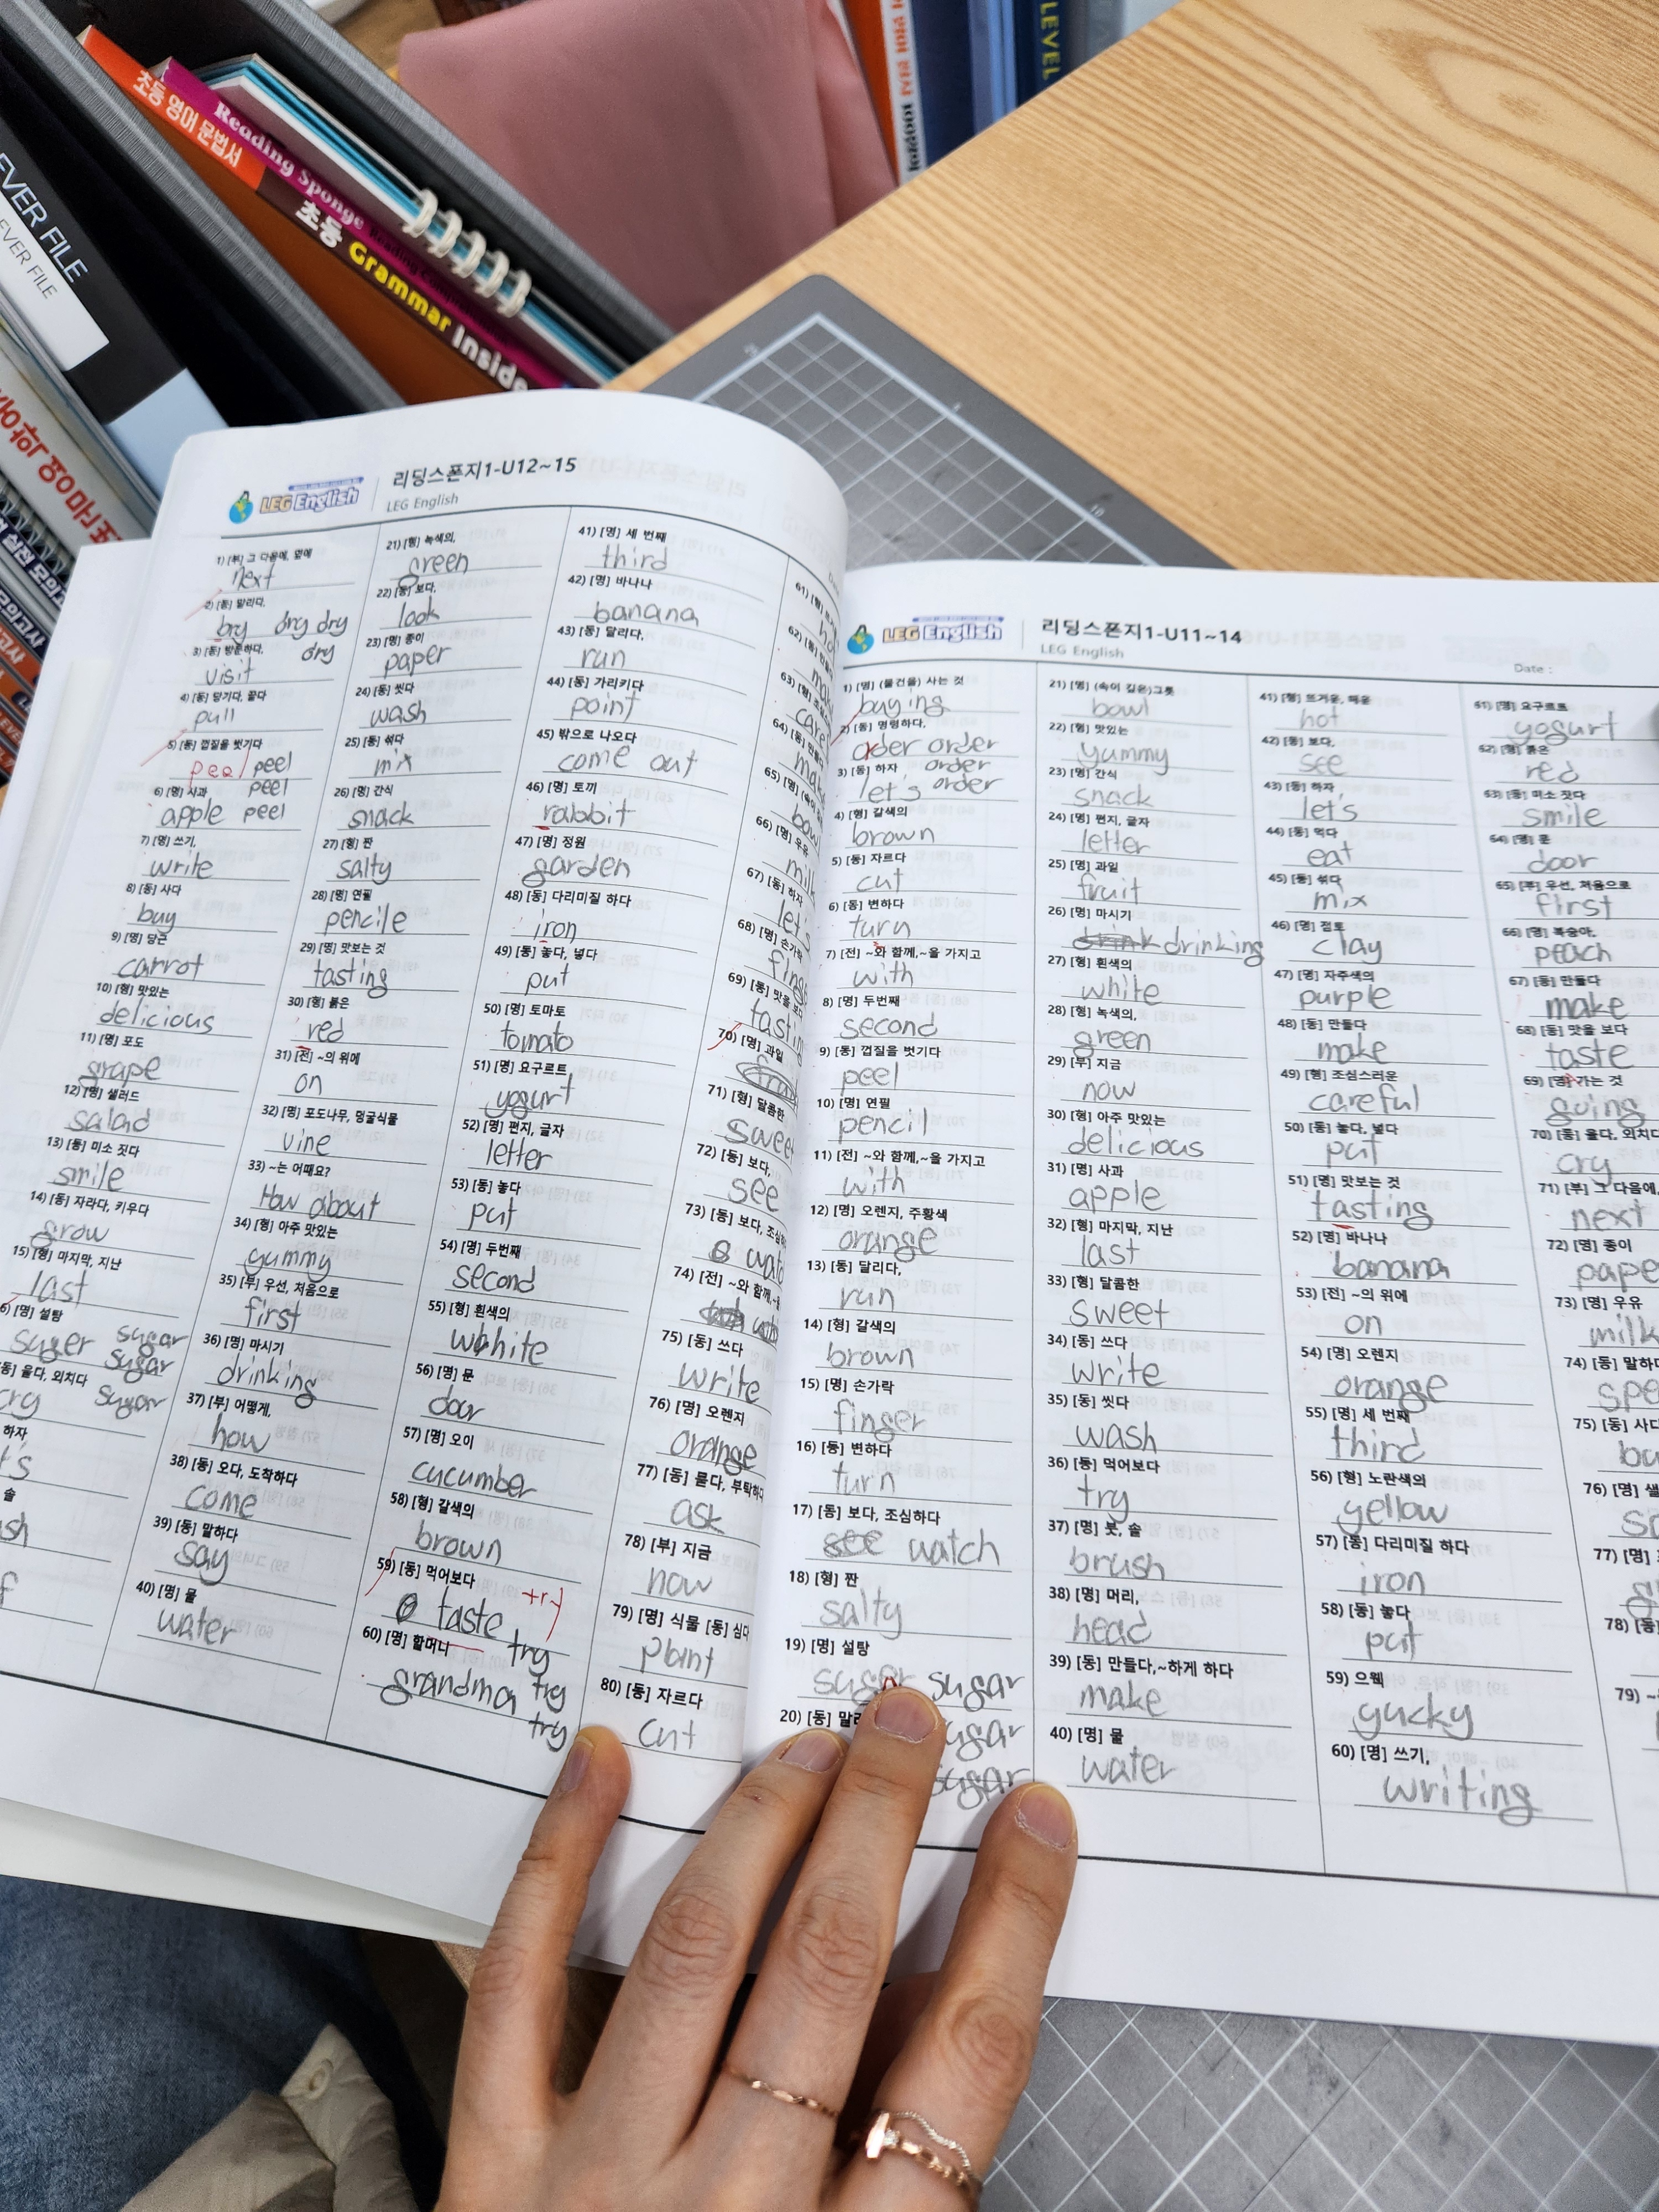 EVER FILE
EVER FILE
초등 영어 문법서
초등 Grammar Inside
Reading Sponge
LEVEL
LEG English
리딩스폰지1-U12~15
LEG English
1) [부] 그 다음에, 옆에
next
2) [동] 말리다,
bry dry dry
dry
3) [동] 방문하다,
visit
4) [동] 당기다, 끌다
pull
5) [동] 껍질을 벗기다
peel peel
peel
6) [명] 사과
apple peel
7) [명] 쓰기,
write
8) [동] 사다
buy
9) [명] 당근
carrot
10) [형] 맛있는
delicious
11) [명] 포도
grape
12) [명] 샐러드
salad
13) [동] 미소 짓다
smile
14) [동] 자라다, 키우다
grow
15) [형] 마지막, 지난
last
6) [명] 설탕
suger sugar
sugar
동] 울다, 외치다
cry sugar
하자
솔
21) [형] 녹색의,
green
22) [동] 보다,
look
23) [명] 종이
paper
24) [동] 씻다
wash
25) [동] 섞다
mix
26) [명] 간식
snack
27) [형] 짠
salty
28) [명] 연필
pencile
29) [명] 맛보는 것
tasting
30) [형] 붉은
red
31) [전] ~의 위에
on
32) [명] 포도나무, 덩굴식물
vine
33) ~는 어때요?
How about
34) [형] 아주 맛있는
yummy
35) [부] 우선, 처음으로
first
36) [명] 마시기
drinking
37) [부] 어떻게,
how
38) [동] 오다, 도착하다
come
39) [동] 말하다
say
40) [명] 물
water
41) [명] 세 번째
third
42) [명] 바나나
banana
43) [동] 달리다,
run
44) [동] 가리키다
point
45) 밖으로 나오다
come out
46) [명] 토끼
rabbit
47) [명] 정원
garden
48) [동] 다리미질 하다
iron
49) [동] 놓다, 넣다
put
50) [명] 토마토
tomato
51) [명] 요구르트
yogurt
52) [명] 편지, 글자
letter
53) [동] 놓다
put
54) [명] 두번째
second
55) [형] 흰색의
white
56) [명] 문
door
57) [명] 오이
cucumber
58) [형] 갈색의
brown
59) [동] 먹어보다
try
taste
try
60) [명] 할머니
grandma try
try
61) [형]
62) [동]
63) [형]
64) [동]
65) [명]
66) [명] 우유
milk
67) [동] 하자
let's
68) [명] 손가락
69) [동] 맛을 보다
70) [명] 과일
71) [형] 달콤한
sweet
72) [동] 보다,
see
73) [동] 보다,
74) [전] ~와 함께,
75) [동] 쓰다
write
76) [명] 오렌지
orange
77) [동] 묻다, 부탁하다
ask
78) [부] 지금
now
79) [명] 식물 [동] 심다
plant
80) [동] 자르다
cut
LEG English
리딩스폰지1-U11~14
LEG English
Date :
1) [명] (물건을) 사는 것
buying
2) [동] 명령하다,
order order
3) [동] 하자 order
let's order
4) [형] 갈색의
brown
5) [동] 자르다
cut
6) [동] 변하다
turn
7) [전] ~와 함께,~을 가지고
with
8) [명] 두번째
second
9) [동] 껍질을 벗기다
peel
10) [명] 연필
pencil
11) [전] ~와 함께,~을 가지고
with
12) [명] 오렌지, 주황색
orange
13) [동] 달리다,
run
14) [형] 갈색의
brown
15) [명] 손가락
finger
16) [동] 변하다
turn
17) [동] 보다, 조심하다
see watch
18) [형] 짠
salty
19) [명] 설탕
sugar
20) [동]
sugar
21) [명] (속이 깊은)그릇
bowl
22) [형] 맛있는
yummy
23) [명] 간식
snack
24) [명] 편지, 글자
letter
25) [명] 과일
fruit
26) [명] 마시기
drink drinking
27) [형] 흰색의
white
28) [형] 녹색의,
green
29) [부] 지금
now
30) [형] 아주 맛있는
delicious
31) [명] 사과
apple
32) [형] 마지막, 지난
last
33) [형] 달콤한
sweet
34) [동] 쓰다
write
35) [동] 씻다
wash
36) [동] 먹어보다
try
37) [명] 붓, 솔
brush
38) [명] 머리,
head
39) [동] 만들다,~하게 하다
make
40) [명] 물
water
41) [형] 뜨거운, 매운
hot
42) [동] 보다,
see
43) [동] 하자
let's
44) [동] 먹다
eat
45) [동] 섞다
mix
46) [명] 점토
clay
47) [명] 자주색의
purple
48) [동] 만들다
make
49) [형] 조심스러운
careful
50) [동] 놓다, 넣다
put
51) [명] 맛보는 것
tasting
52) [명] 바나나
banana
53) [전] ~의 위에
on
54) [명] 오렌지
orange
55) [명] 세 번째
third
56) [형] 노란색의
yellow
57) [동] 다리미질 하다
iron
58) [동] 놓다
put
59) 으웩
yucky
60) [명] 쓰기,
writing
61) [명] 요구르트
yogurt
62) [형] 붉은
red
63) [동] 미소 짓다
smile
64) [명] 문
door
65) [부] 우선, 처음으로
first
66) [명] 복숭아,
peach
67) [동] 만들다
make
68) [동] 맛을 보다
taste
69) [명] 가는 것
going
70) [동] 울다, 외치다
cry
71) [부] 그 다음에,
next
72) [명] 종이
73) [명] 우유
milk
74) [동]
75) [동] 사다
76) [명]
77) [명]
78) [동]
79)